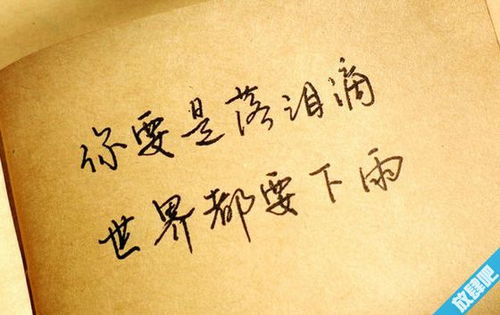 你要是落泪滴
世界都要下雨
放肆吧